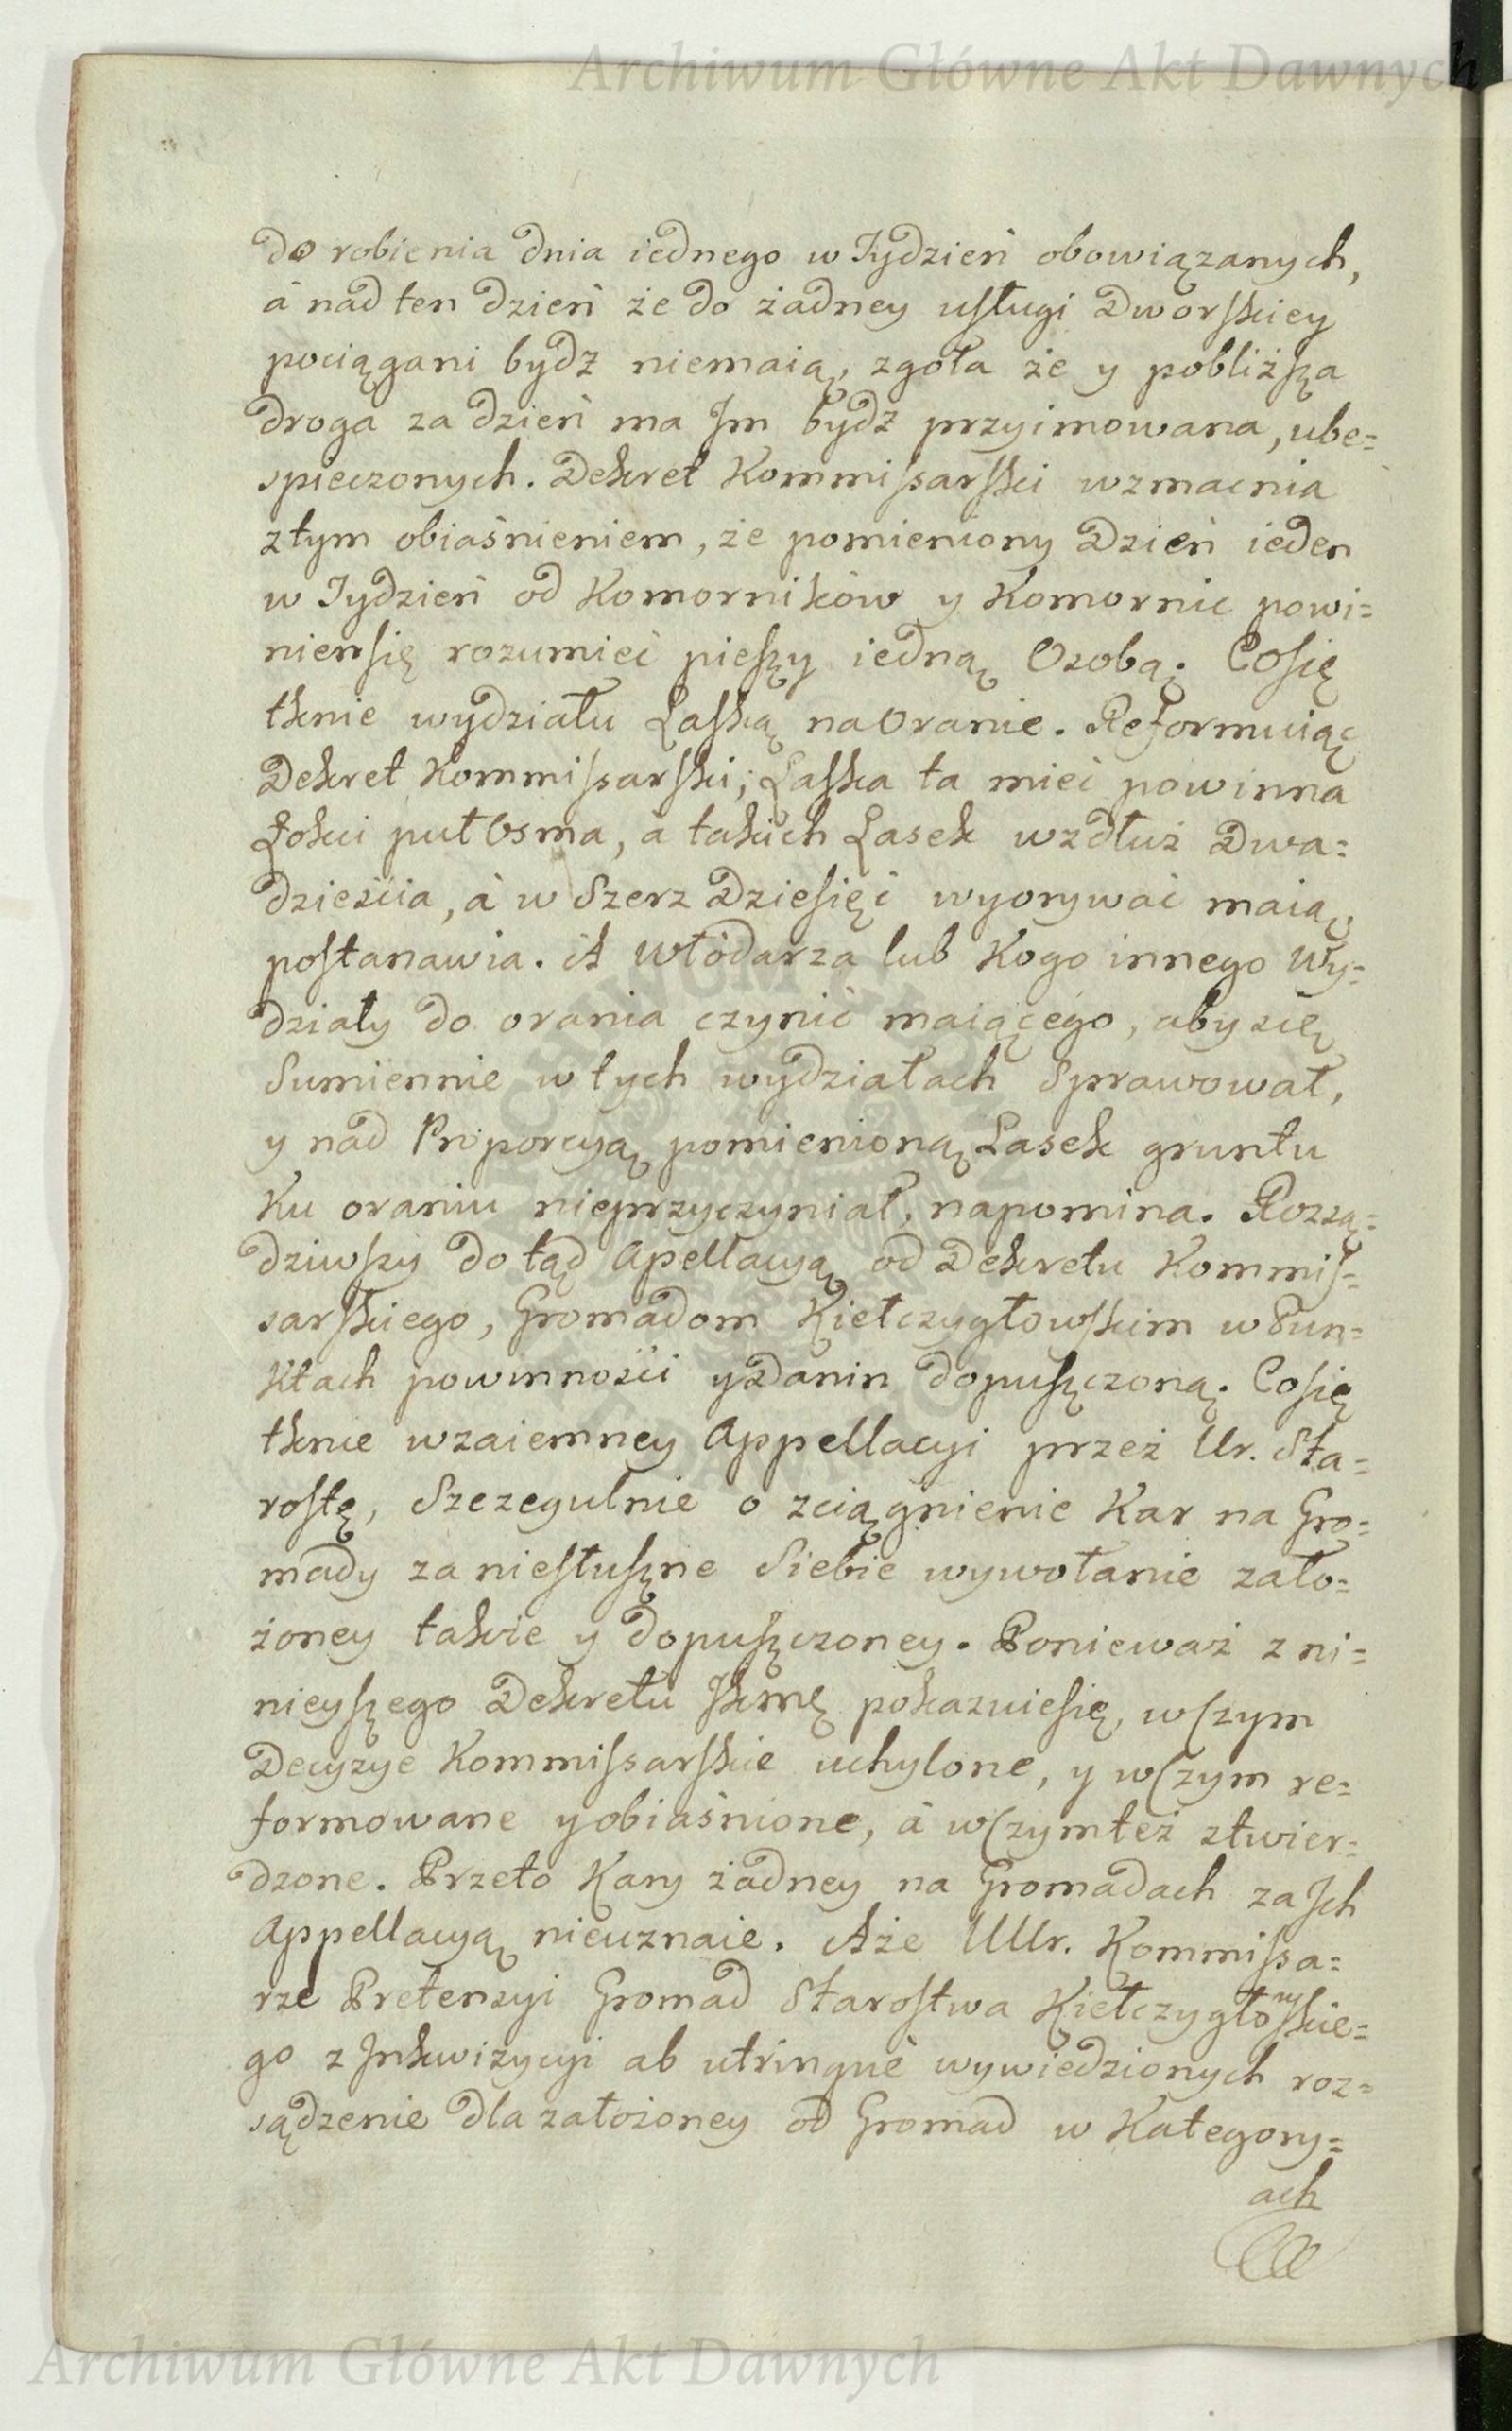 Archiwum Główne Akt Dawnych
do robienia dnia iednego w Tydzień obowiązanych,
á nad ten dzień że do żadney usługi Dworskiey
pociągani bydź niemaią, zgoła że y pobliższa
droga za dzień ma Jm bydź przyimowana, ube=
spieczonych. Dekret Kommissarski wzmacnia
z tym obiaśnieniem, że pomieniony Dzień ieden
w Tydzień od Komorników y Komornic powi=
niensię rozumieć pieszy iedną Osobą. Cosię
tknie wydziału Laską na Oranie. Reformuiąc
Dekret Kommissarski; Laska ta mieć powinna
Łokci puł Osma, a takich Lasek wzdłuż Dwa=
dzieścia, á w Szerz Dziesięć wyorywać maią,
postanawia. A Włódarza lub Kogo innego Wy=
działy do orania czynić maiącego, aby się
Sumiennie w tych wydziałach Sprawował,
y nad Proporcyą pomienioną Lasek gruntu
Ku oraniu nieprzyczyniał, napomina. Rozsą=
dziwszy do tąd Apellacyą od Dekretu Kommis=
sarskiego, Gromadom Kiełczygłowskim w Pun=
Ktach powinności y Danin dopuszczoną. Cosię
tknie wzaiemney Appellacyi przeż Ur. Sta=
rostę, Szczegulnie o zciągnienie Kar na Gro=
mady za niesłuszne Siebie wywołanie zało=
żoney takie y dopuszczoney. Ponieważ z ni=
nieyszego Dekretu Jkmę pokazuiesię, w czym
Decyzye Kommissarskie uchylone, y w czym re=
formowane y obiaśnione, á w czymteż ztwier=
dzone. Przeto Kary żadney na Gromadach za Jch
Appellacyą nieuznaie. Aże UUr. Kommissa=
rze Pretensyi Gromad Starostwa Kiełczygłowskie=
go z Jnkwizycyi ab utrinquè wywiedzionych roz=
sądzenie dla założoney od Gromad w Kategory=
ach
Archiwum Główne Akt Dawnych